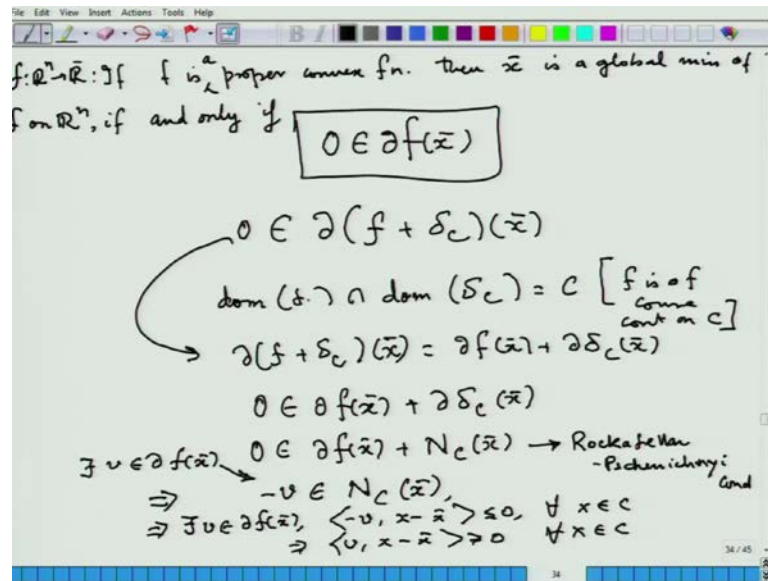 File Edit View Insert Actions Tools Help
f: ℝⁿ→ℝ̄ : If f is a proper convex fn. then x̄ is a global min of
f on ℝⁿ, if and only if
0 ∈ ∂f(x̄)
0 ∈ ∂(f + δ_C)(x̄)
dom (f.) ∩ dom (δ_C) = C [f is of course cont on C]
∂(f + δ_C)(x̄) = ∂f(x̄) + ∂δ_C(x̄)
0 ∈ ∂f(x̄) + ∂δ_C(x̄)
0 ∈ ∂f(x̄) + N_C(x̄) → Rockafellar
-Pschenichnyi
Cond
∃ v ∈ ∂f(x̄)
⇒ -v ∈ N_C(x̄),
⇒ ∃ v ∈ ∂f(x̄), <-v, x - x̄> ≤ 0, ∀ x ∈ C
⇒ <v, x - x̄> ≥ 0 ∀ x ∈ C
34/45
34